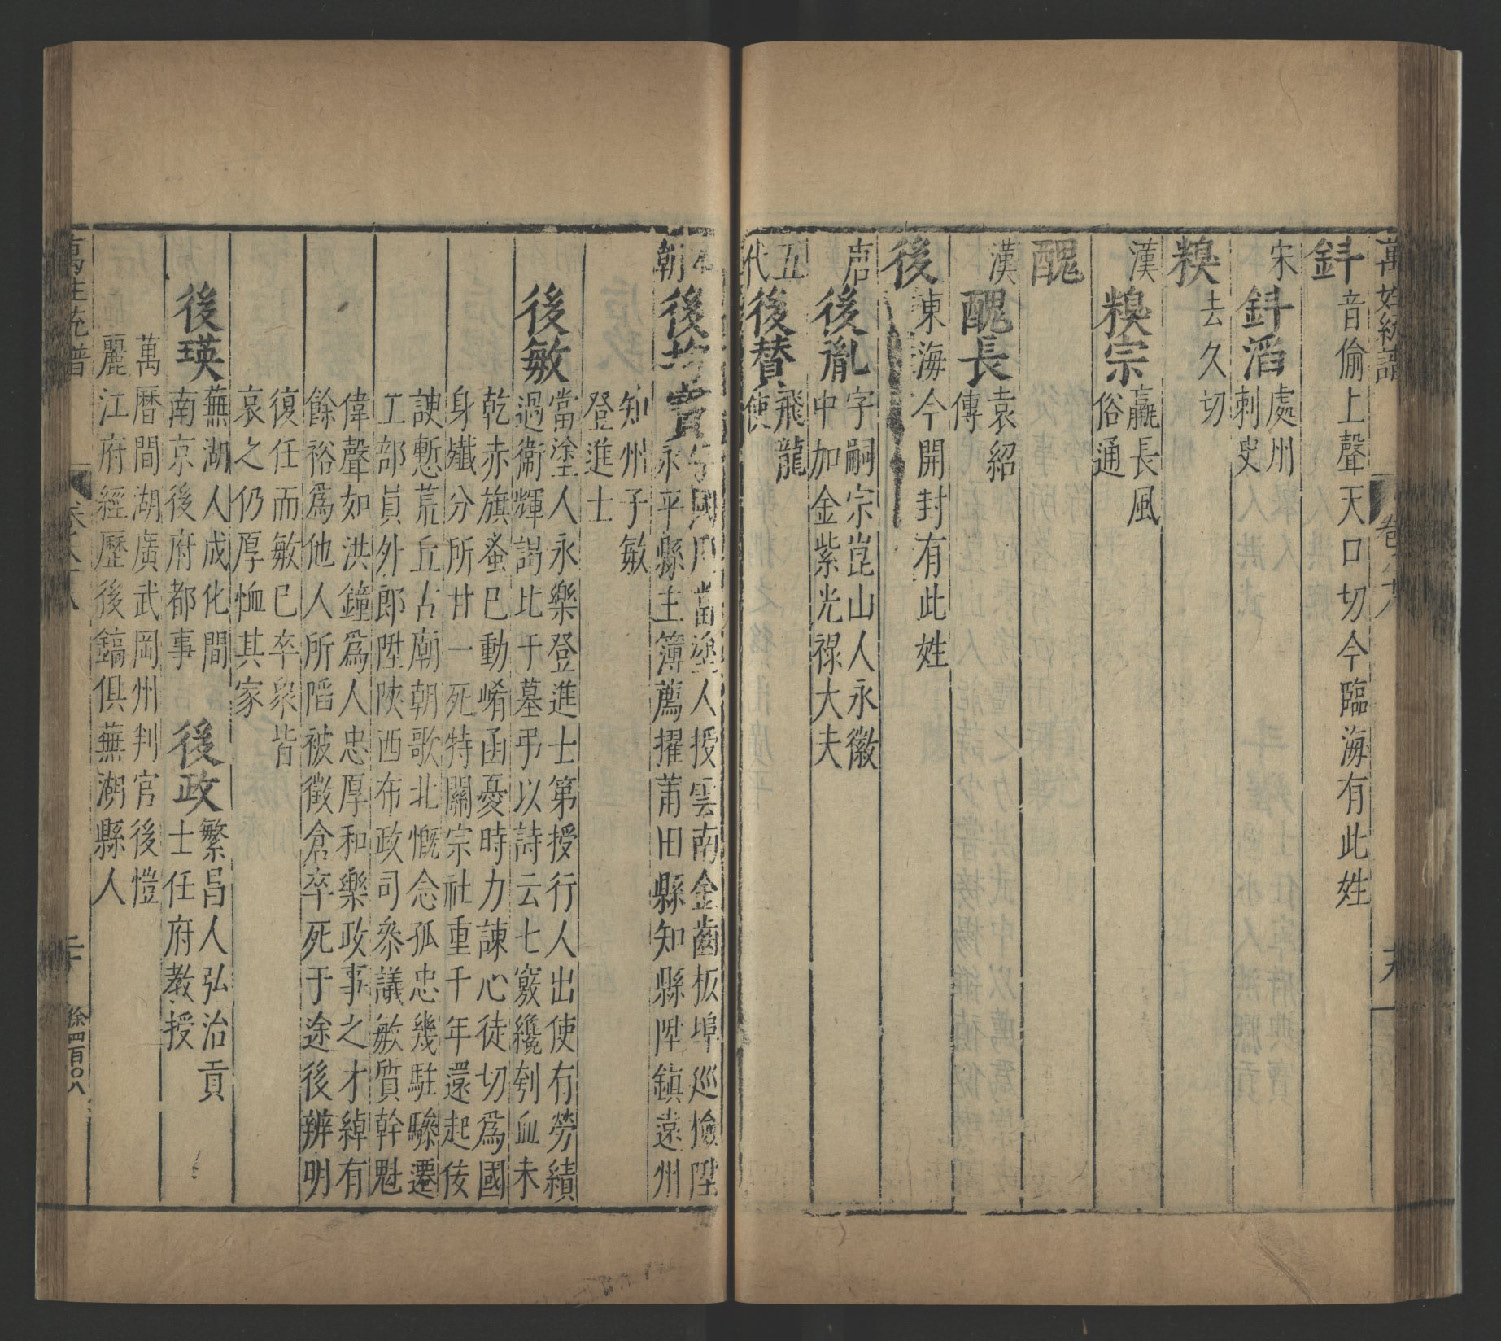 萬姓統譜
卷之八
鈄 音偷上聲天口切今臨海有此姓
宋 鈄滔 處州
刺史
糗 去久切
漢 糗宗 嬴長風
俗通
醜
漢 醜長 袁紹
傳
後 東海今開封有此姓
唐 後胤 字嗣宗崑山人永徽
中加金紫光祿大夫
五代 後賛 飛龍
使
本朝 國府當塗人授雲南金齒板埠巡檢陞
永平縣主簿薦擢莆田縣知縣陞鎮遠州
知州子敏
登進士
後敏 當塗人永樂登進士第授行人出使有勞績
過衛輝謁比干墓弔以詩云七竅纔刳血未
乾赤旗蚤巳動崤函憂時力諫心徒切爲國
身殲分所甘一死特關宗社重千年還起佞
諛慙荒丘古廟朝歌北慨念孤忠幾駐驂遷
工部員外郎陞陝西布政司叅議敏質幹魁
偉聲如洪鐘爲人忠厚和樂政事之才綽有
餘裕爲他人所䧟被徵倉卒死于途後辨明
復任而敏已卒眾皆
哀之仍厚恤其家
後瑛 蕪湖人成化間
南京後府都事
後政 繁昌人弘治貢
士任府教授
萬曆間湖廣武岡州判官後愷
麗江府經歷後鎬俱蕪湖縣人
萬姓統譜